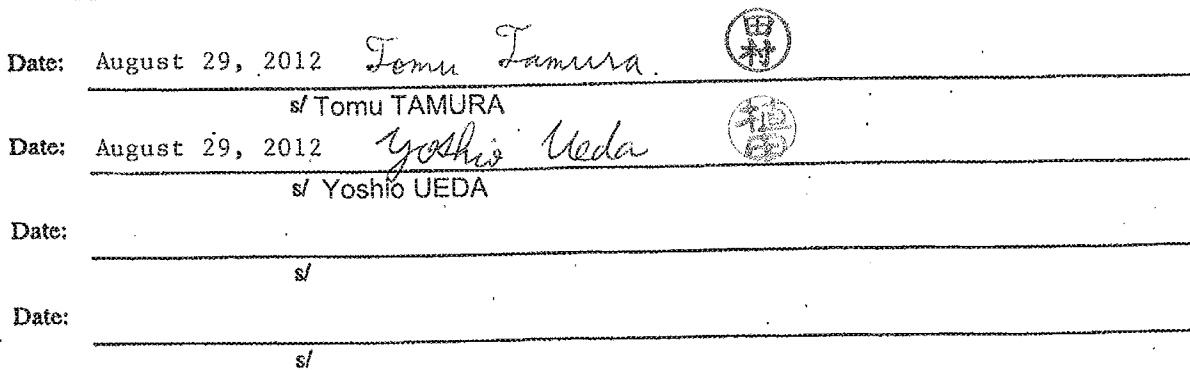 Date: August 29, 2012 Tomu Tamura. 田村
s/ Tomu TAMURA
Date: August 29, 2012 Yoshio Ueda 植田
s/ Yoshio UEDA
Date:
s/
Date:
s/